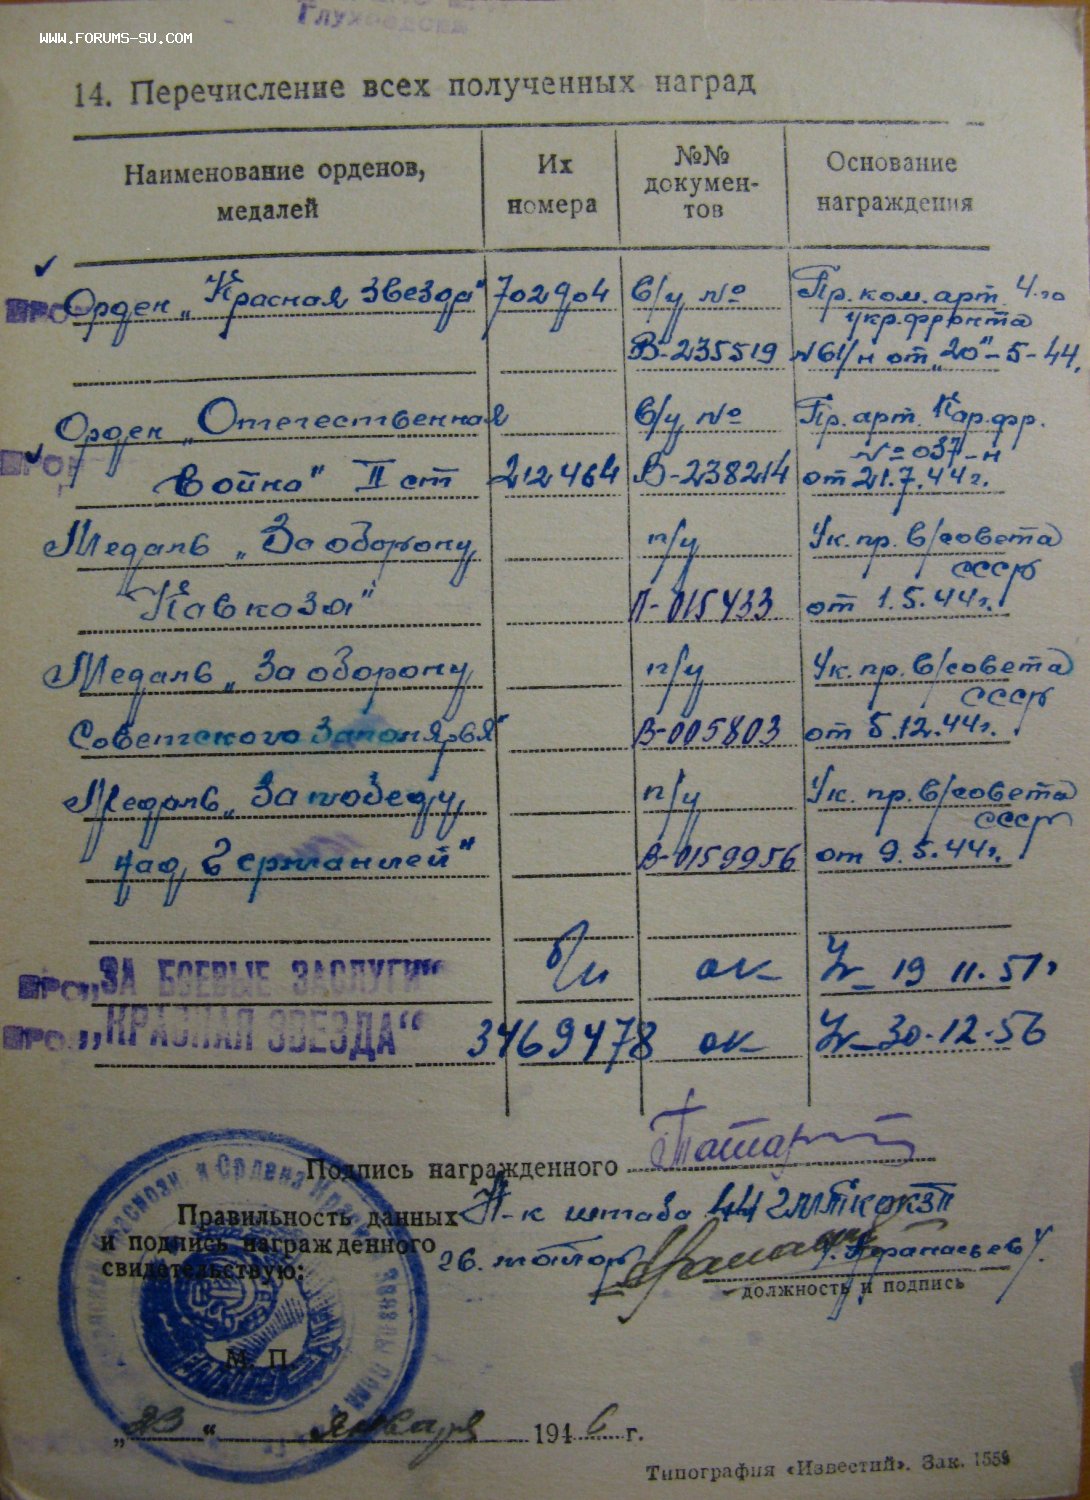 WWW.FORUMS-SU.COM
14. Перечисление всех полученных наград
Наименование орденов, медалей
Их номера
№№ документов
Основание награждения
Орден „Красная звезда" 702904 в/у № Пр. ком. арт. 4-го
укр. фронта
В-235519 №61/н от „20"-5-44.
Орден „Отечественная в/у № Пр. арт. Кар. фр.
№=037-н
война" II ст 212464 В-238214 от 21.7.44г.
Медаль „За оборону п/у Ук. пр. в/совета
СССР
Кавказа" П-015433 от 1.5.44г.
Медаль „За оборону п/у Ук. пр. в/совета
СССР
Советского Заполярья" В-005803 от 5.12.44г.
Медаль „За победу п/у Ук. пр. в/совета
СССР
над Германией" В-0159956 от 9.5.44г.
„ЗА БОЕВЫЕ ЗАСЛУГИ" б/н ок Ук 19 11.51г
„КРАСНАЯ ЗВЕЗДА" 3469478 ок Ук 30.12.56
Подпись награжденного
Правильность данных Н-к штаба
и подпись награжденного
свидетельствую: гв. майор Афанасьев
должность и подпись
М. П.
„23" января 1946 г.
Типография «Известий». Зак. 1559